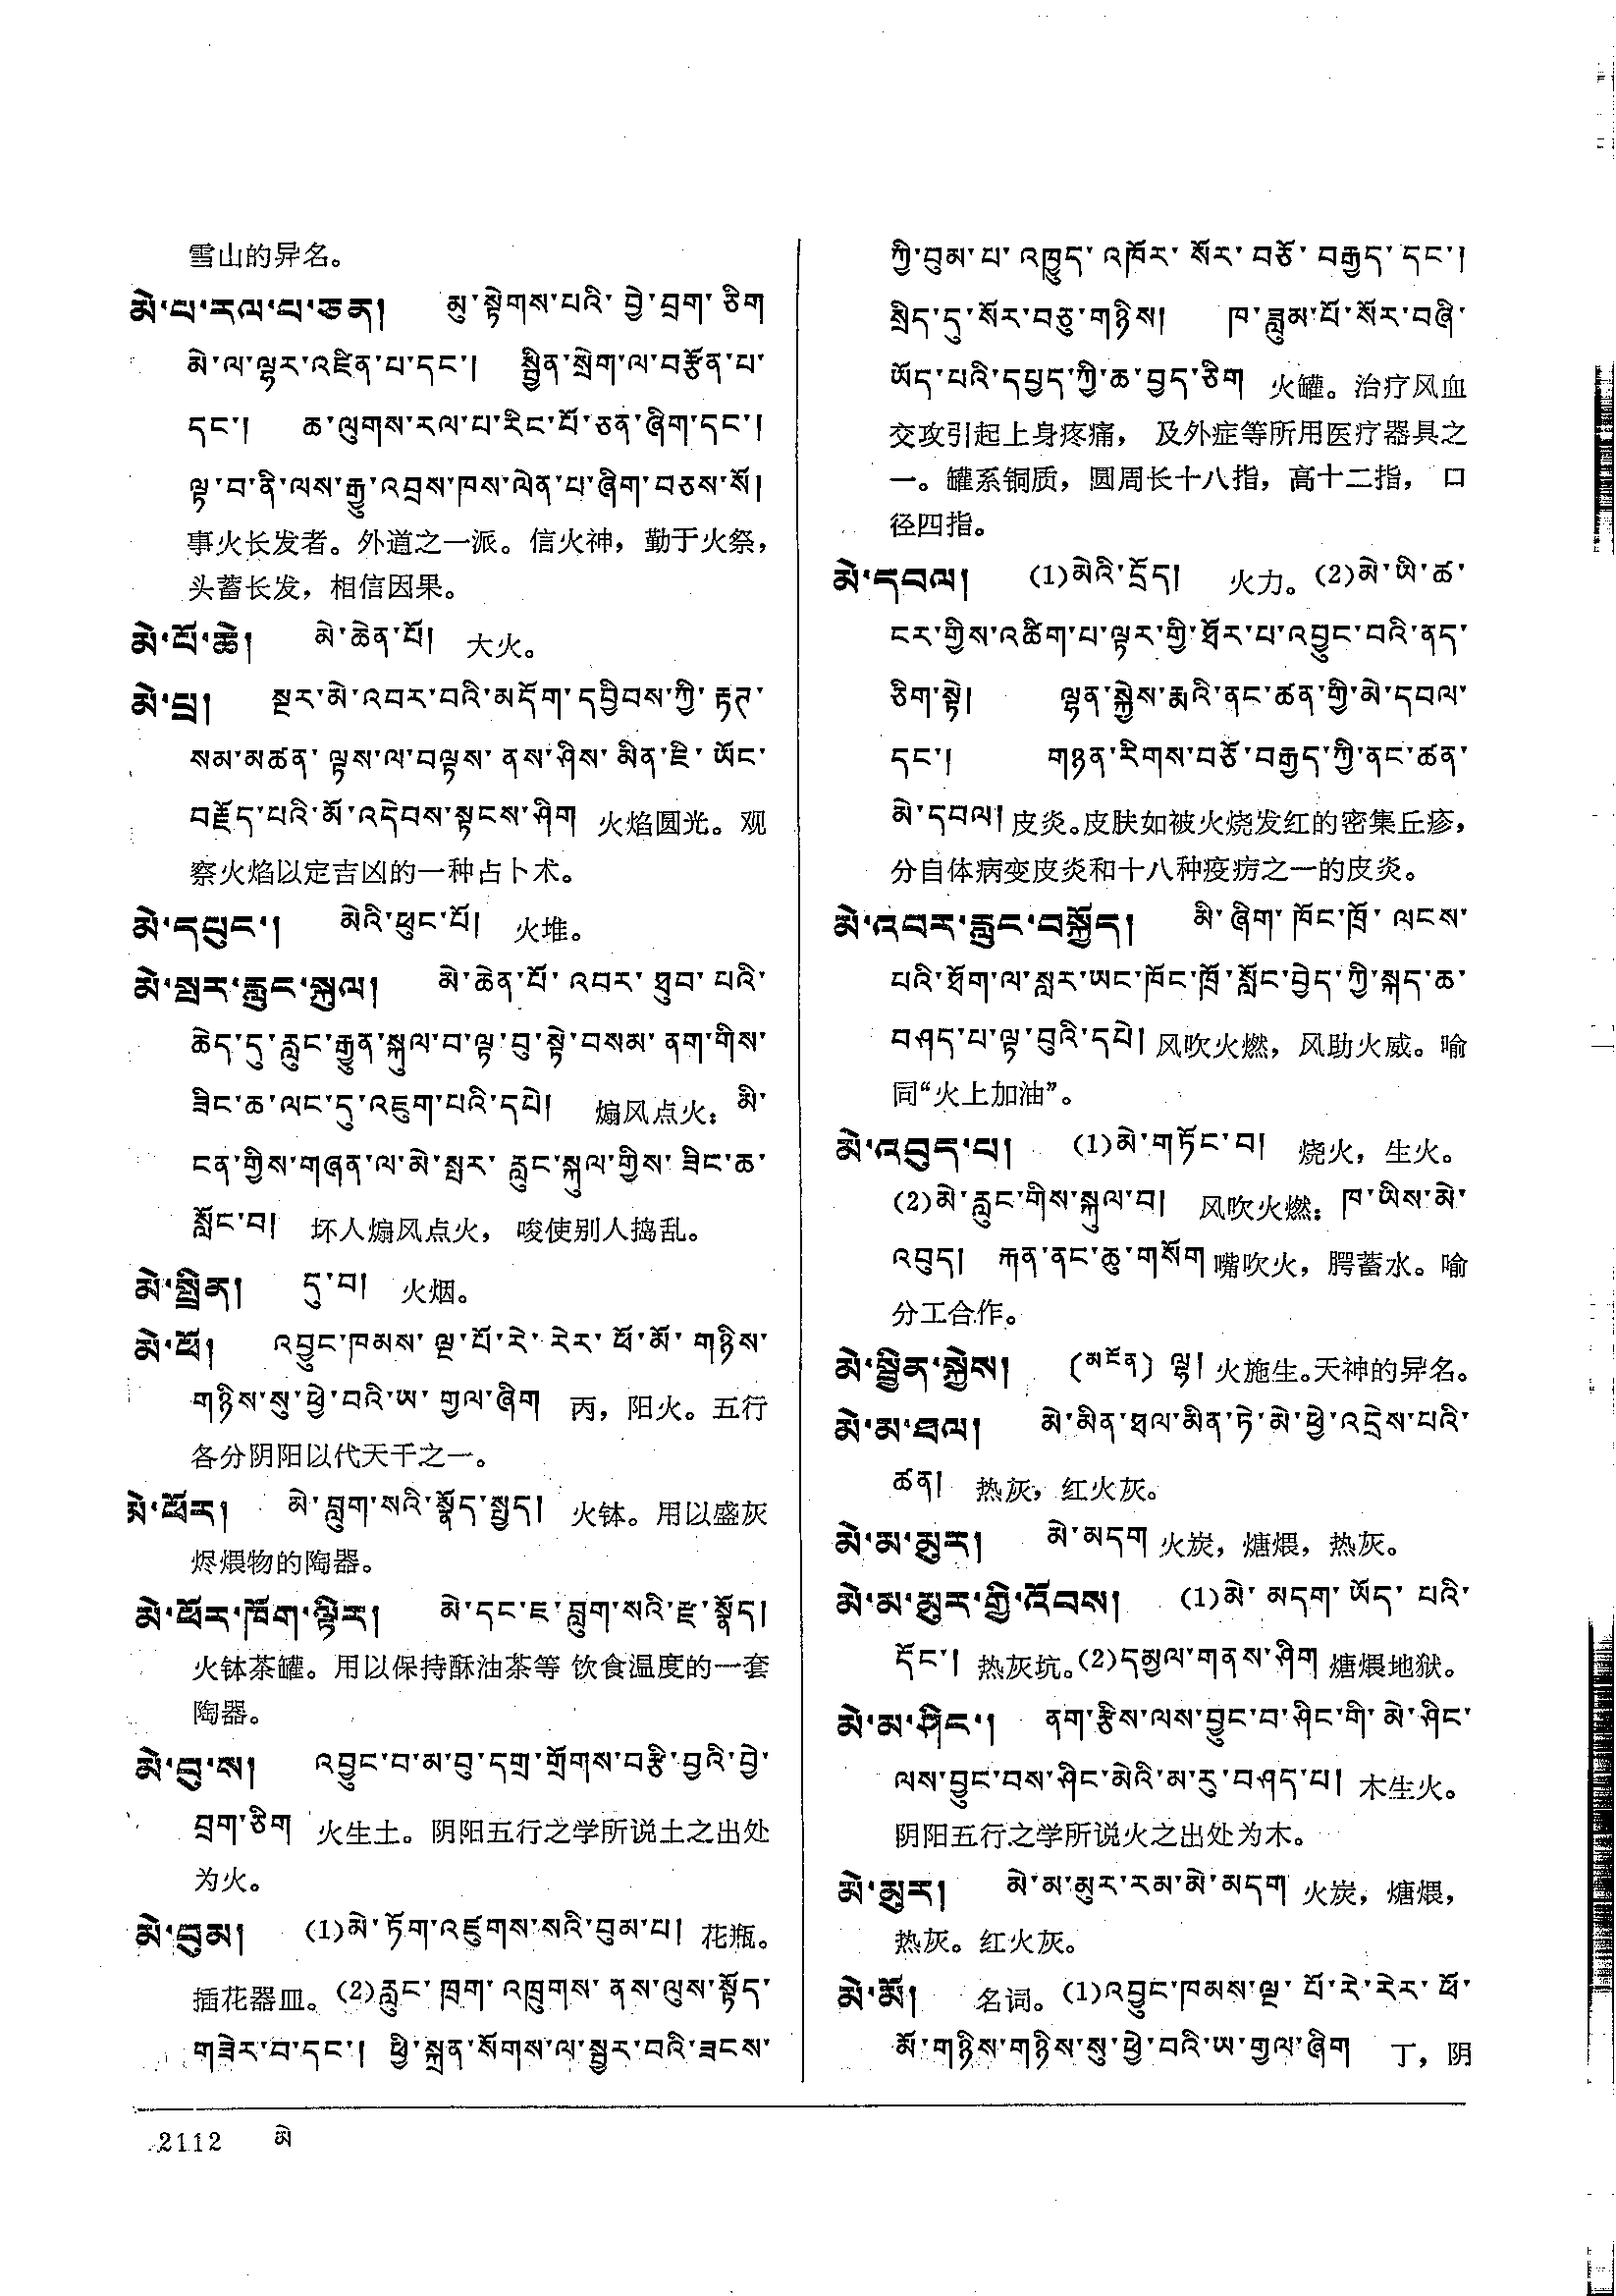 雪山的异名。
མེ་པ་རལ་པ་ཅན། མུ་སྟེགས་པའི་བྱེ་བྲག་ཅིག
མེ་ལ་ལྷར་འཛིན་པ་དང་། སྦྱིན་སྲེག་ལ་བརྩོན་པ་
དང་། ཆ་ལུགས་རལ་པ་རིང་པོ་ཅན་ཞིག་དང་།
ལྟ་བ་ནི་ལས་རྒྱུ་འབྲས་ཁས་ལེན་པ་ཞིག་བཅས་སོ།
事火长发者。外道之一派。信火神，勤于火祭，
头蓄长发，相信因果。
མེ་པོ་ཆེ། མེ་ཆེན་པོ། 大火。
མེ་པྲ། སྔར་མེ་འབར་བའི་མདོག་དབྱིབས་ཀྱི་རྟཊ་
སམ་མཚན་ལྟས་ལ་བལྟས་ནས་ཤིས་མིན་ཇི་ཡོང་
བརྗོད་པའི་མོ་འདེབས་སྟངས་ཤིག 火焰圆光。观
察火焰以定吉凶的一种占卜术。
མེ་དཔུང་། མེའི་ཕུང་པོ། 火堆。
མེ་སྤར་རླུང་སྐུལ། མེ་ཆེན་པོ་འབར་ཐུབ་པའི་
ཆེད་དུ་རླུང་རྒྱུན་སྐུལ་བ་ལྟ་བུ་སྟེ་བསམ་ནག་གིས་
ཟིང་ཆ་ལང་དུ་འཇུག་པའི་དཔེ། 煽风点火：མི་
ངན་གྱིས་གཞན་ལ་མེ་སྤར་རླུང་སྐུལ་གྱིས་ཟིང་ཆ་
སློང་བ། 坏人煽风点火，唆使别人捣乱。
མེ་སྤྲིན། དུ་བ། 火烟。
མེ་ཕོ། འབྱུང་ཁམས་ལྔ་པོ་རེ་རེར་ཕོ་མོ་གཉིས་
གཉིས་སུ་ཕྱེ་བའི་ཨ་གྱལ་ཞིག 丙，阳火。五行
各分阴阳以代天干之一。
མེ་ཕོར། མེ་བླུག་སའི་སྣོད་སྤྱད། 火钵。用以盛灰
烬煨物的陶器。
མེ་ཕོར་ཁོག་ལྟིར། མེ་དང་ཇ་བླུག་སའི་རྫ་སྣོད།
火钵茶罐。用以保持酥油茶等饮食温度的一套
陶器。
མེ་བུ་ས། འབྱུང་བ་མ་བུ་དགྲ་གྲོགས་བརྩི་བྱའི་བྱེ་
བྲག་ཅིག 火生土。阴阳五行之学所说土之出处
为火。
མེ་བུམ། (1)མེ་ཏོག་འཛུགས་སའི་བུམ་པ། 花瓶。
插花器皿。(2)རླུང་ཁྲག་འཁྲུགས་ནས་ལུས་སྟོད་
གཟེར་བ་དང་། ཕྱི་སྐྲན་སོགས་ལ་སྦྱར་བའི་ཟངས་
ཀྱི་བུམ་པ་འཁྱུད་འཁོར་སོར་བཅོ་བརྒྱད་དང་།
སྲིད་དུ་སོར་བཅུ་གཉིས། ཁ་ཟླུམ་པོ་སོར་བཞི་
ཡོད་པའི་དཔྱད་ཀྱི་ཆ་བྱད་ཅིག 火罐。治疗风血
交攻引起上身疼痛，及外症等所用医疗器具之
一。罐系铜质，圆周长十八指，高十二指，口
径四指。
མེ་དབལ། (1)མེའི་དྲོད། 火力。(2)མེ་ཡི་ཚ་
ངར་གྱིས་འཚིག་པ་ལྟར་གྱི་ཐོར་པ་འབྱུང་བའི་ནད་
ཅིག་སྟེ། ལྷན་སྐྱེས་རྨའི་ནང་ཚན་གྱི་མེ་དབལ་
དང་། གཉན་རིགས་བཅོ་བརྒྱད་ཀྱི་ནང་ཚན་
མེ་དབལ། 皮炎。皮肤如被火烧发红的密集丘疹，
分自体病变皮炎和十八种疫疠之一的皮炎。
མེ་འབར་རླུང་བསྐྱོད། མི་ཞིག་ཁོང་ཁྲོ་ལངས་
པའི་ཐོག་ལ་སླར་ཡང་ཁོང་ཁྲོ་སློང་བྱེད་ཀྱི་སྐད་ཆ་
བཤད་པ་ལྟ་བུའི་དཔེ། 风吹火燃，风助火威。喻
同“火上加油”。
མེ་འབུད་པ། (1)མེ་གཏོང་བ། 烧火，生火。
(2)མེ་རླུང་གིས་སྐུལ་བ། 风吹火燃：ཁ་ཡིས་མེ་
འབུད། རྐན་ནང་ཆུ་གསོག 嘴吹火，腭蓄水。喻
分工合作。
མེ་སྦྱིན་སྐྱེས། (མངོན) ལྷ། 火施生。天神的异名。
མེ་མ་ཐལ། མེ་མིན་ཐལ་མིན་ཏེ་མེ་ཕྱེ་འདྲེས་པའི་
ཚན། 热灰，红火灰。
མེ་མ་མུར། མེ་མདག 火炭，煻煨，热灰。
མེ་མ་མུར་གྱི་འོབས། (1)མེ་མདག་ཡོད་པའི་
དོང་། 热灰坑。(2)དམྱལ་གནས་ཤིག 煻煨地狱。
མེ་མ་ཤིང་། ནག་རྩིས་ལས་བྱུང་བ་ཤིང་གི་མེ་ཤིང་
ལས་བྱུང་བས་ཤིང་མེའི་མ་རུ་བཤད་པ། 木生火。
阴阳五行之学所说火之出处为木。
མེ་མུར། མེ་མ་མུར་རམ་མེ་མདག 火炭，煻煨，
热灰。红火灰。
མེ་མོ། 名词。(1)འབྱུང་ཁམས་ལྔ་པོ་རེ་རེར་ཕོ་
མོ་གཉིས་གཉིས་སུ་ཕྱེ་བའི་ཨ་གྱལ་ཞིག 丁，阴
2112 མེ